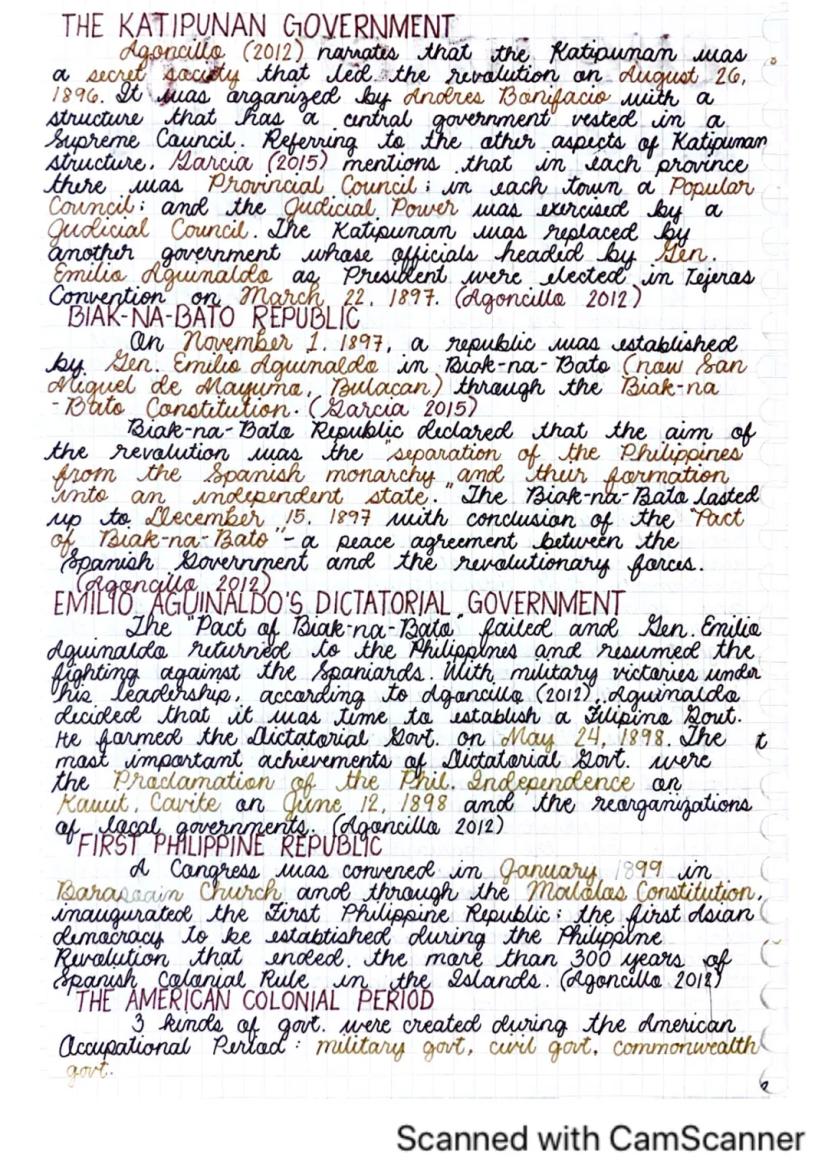 THE KATIPUNAN GOVERNMENT
Agoncillo (2012) narrates that the Katipunan was
a secret society that led the revolution on August 26,
1896. It was organized by Andres Bonifacio with a
structure that has a central government vested in a
Supreme Council. Referring to the other aspects of Katipunan
structure, Garcia (2015) mentions that in each province
there was Provincial Council; in each town a Popular
Council; and the Judicial Power was exercised by a
Judicial Council. The Katipunan was replaced by
another government whose officials headed by Gen.
Emilio Aguinaldo as President were elected in Tejeras
Convention on March 22, 1897. (Agoncillo 2012)
BIAK-NA-BATO REPUBLIC
On November 1, 1897, a republic was established
by Gen. Emilio Aguinaldo in Biak-na-Bato (now San
Miguel de Mayumo, Bulacan) through the Biak-na
-Bato Constitution. (Garcia 2015)
Biak-na-Bato Republic declared that the aim of
the revolution was the "separation of the Philippines
from the Spanish monarchy and their formation
into an independent state." The Biak-na-Bato lasted
up to December 15, 1897 with conclusion of the "Pact
of Biak-na-Bato" - a peace agreement between the
Spanish Government and the revolutionary forces.
(Agoncillo 2012)
EMILIO AGUINALDO'S DICTATORIAL GOVERNMENT
The "Pact of Biak-na-Bato" failed and Gen. Emilio
Aguinaldo returned to the Philippines and resumed the
fighting against the Spaniards. With military victories under
his leadership, according to Agoncillo (2012), Aguinaldo
decided that it was time to establish a Filipino Govt.
He formed the Dictatorial Govt. on May 24, 1898. The t
most important achievements of Dictatorial Govt. were
the Proclamation of the Phil. Independence on
Kawit, Cavite on June 12, 1898 and the reorganizations
of local governments. (Agoncillo 2012)
FIRST PHILIPPINE REPUBLIC
A Congress was convened in January, 1899 in
Barasoain Church and through the Malolos Constitution,
inaugurated the First Philippine Republic; the first Asian
democracy to be established during the Philippine
Revolution that ended the more than 300 years of
Spanish Colonial Rule in the Islands. (Agoncillo 2012)
THE AMERICAN COLONIAL PERIOD
3 kinds of govt. were created during the American
Occupational Period: military govt, civil govt, commonwealth
govt.
Scanned with CamScanner